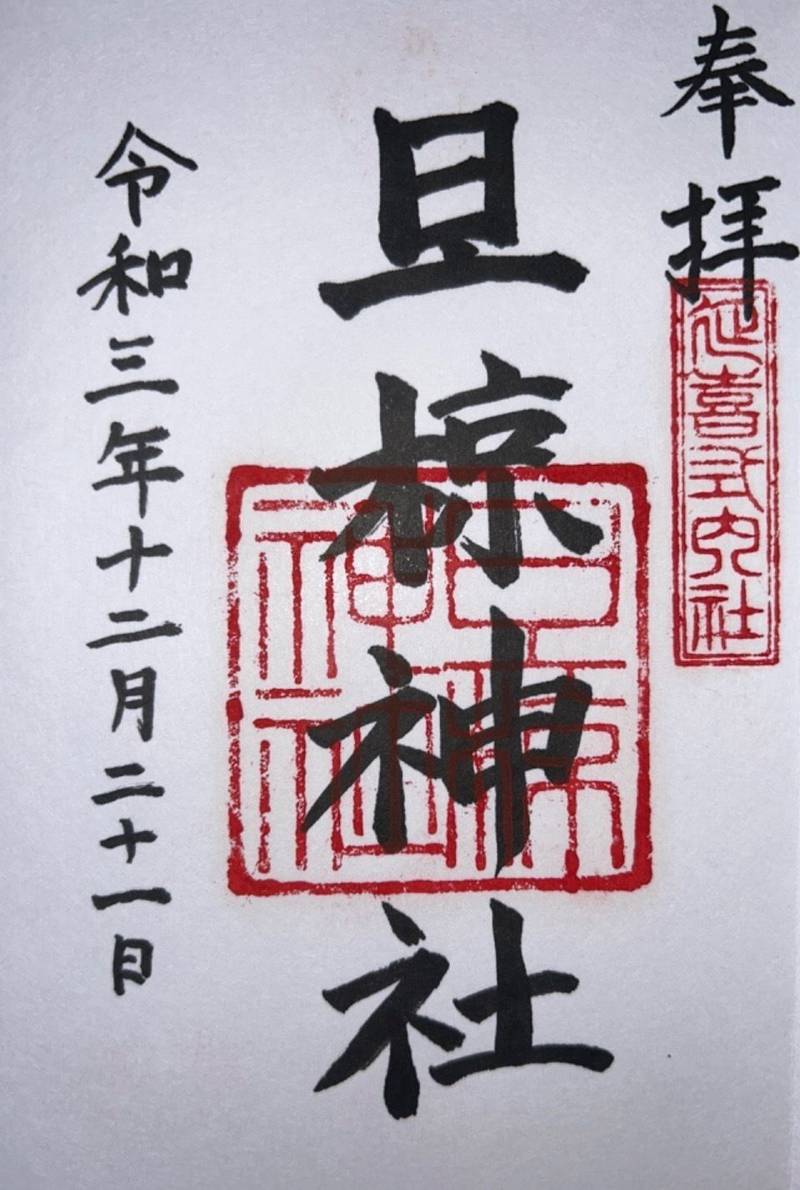 奉拝
延喜式内社
旦椋神社
旦椋神社
令和三年十二月二十一日